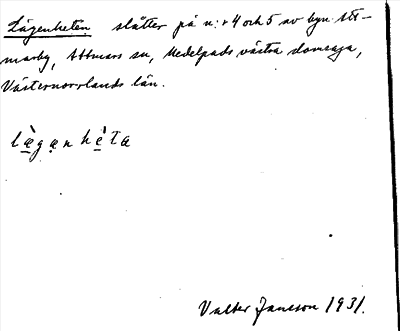 Lägenheten slåtter på n:r 4 och 5 av byn Att-
marby, Attmars sn, Medelpads västra domsaga,
Västernorrlands län.
lægənhèta
Valter Jansson 1931.